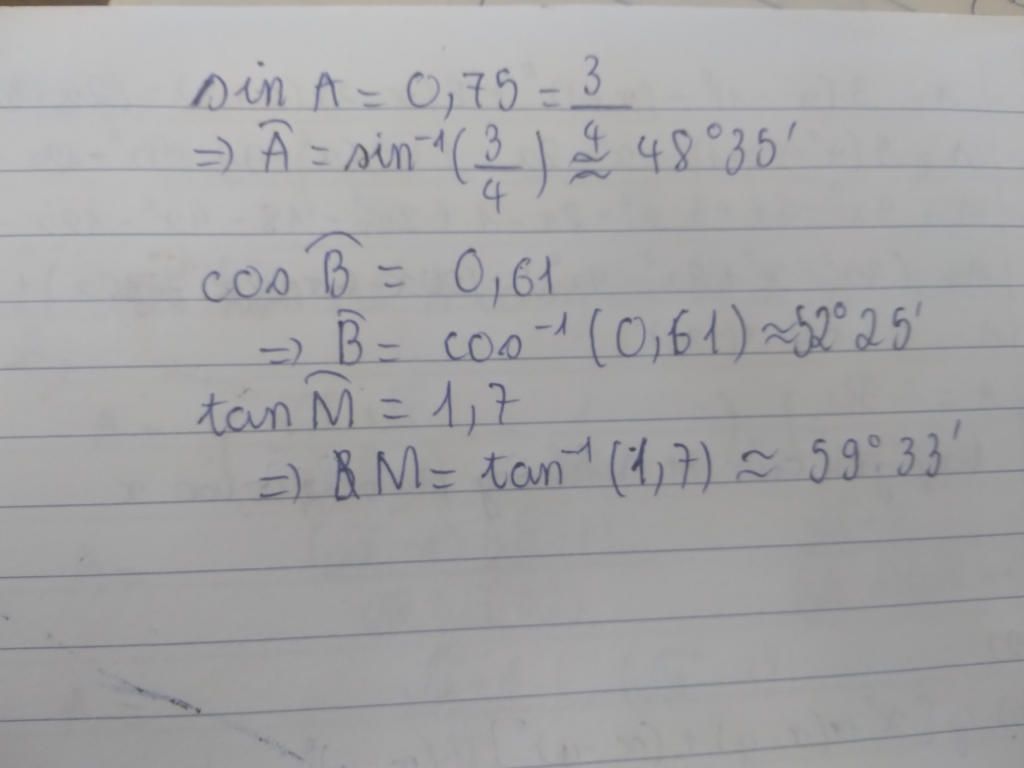 sin A = 0,75 = 3/4
=> Â = sin⁻¹(3/4) ≈ 48°35'
cos B̂ = 0,61
=> B̂ = cos⁻¹(0,61) ≈ 52°25'
tan M̂ = 1,7
=> M = tan⁻¹(1,7) ≈ 59°33'